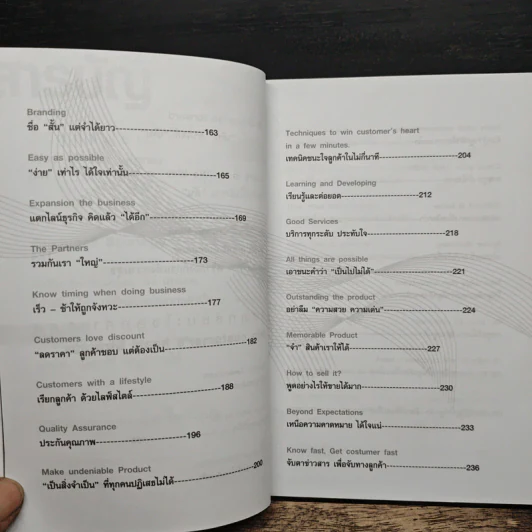 สารบัญ
Branding
ชื่อ "สั้น" แต่จำได้ยาว--------------------163
Easy as possible
"ง่าย" เท่าไร ได้ใจเท่านั้น--------------------165
Expansion the business
แตกไลน์ธุรกิจ คิดแล้ว "ได้อีก"--------------------169
The Partners
รวมกันเรา "ใหญ่"--------------------173
Know timing when doing business
เร็ว – ช้าให้ถูกจังหวะ--------------------177
Customers love discount
"ลดราคา" ลูกค้าชอบ แต่ต้องเป็น--------------------182
Customers with a lifestyle
เรียกลูกค้า ด้วยไลฟ์สไตล์--------------------188
Quality Assurance
ประกันคุณภาพ--------------------196
Make undeniable Product
"เป็นสิ่งจำเป็น" ที่ทุกคนปฏิเสธไม่ได้--------------------200
Techniques to win customer's heart
in a few minutes
เทคนิคชนะใจลูกค้าในไม่กี่นาที--------------------204
Learning and Developing
เรียนรู้และต่อยอด--------------------212
Good Services
บริการทุกระดับ ประทับใจ--------------------218
All things are possible
เอาชนะคำว่า "เป็นไปไม่ได้"--------------------221
Outstanding the product
อย่าลืม "ความสวย ความเด่น"--------------------224
Memorable Product
"จำ" สินค้าเราให้ได้--------------------227
How to sell it?
พูดอย่างไรให้ขายได้มาก--------------------230
Beyond Expectations
เหนือความคาดหมาย ได้ใจแน่--------------------233
Know fast, Get costumer fast
จับตาข่าวสาร เพื่อจับทางลูกค้า--------------------236